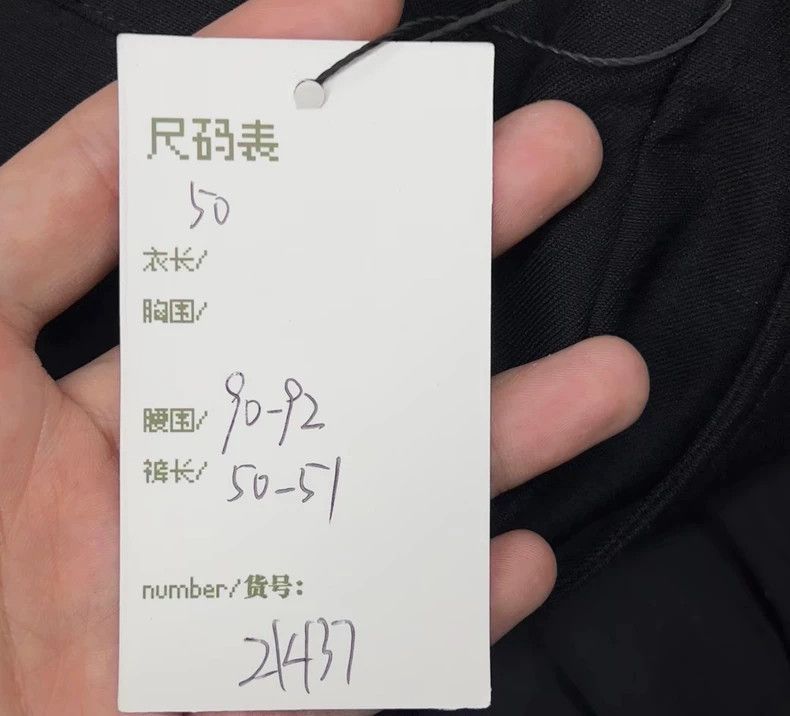 尺码表
50
衣长/
胸围/
腰围/ 90-92
裤长/ 50-51
number/货号:
21437